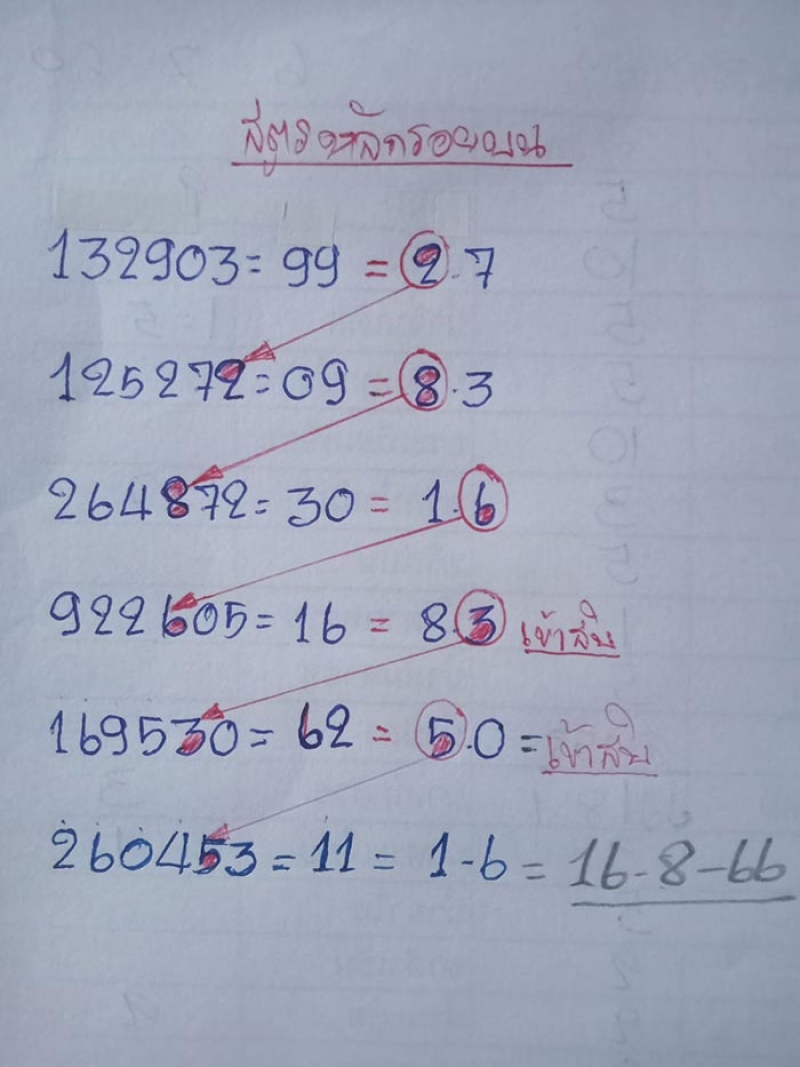 สูตรหลักร้อยบน
132903 = 99 = 2.7
125272 = 09 = 8.3
264872 = 30 = 1.6
922605 = 16 = 8.3 เข้าสิบ
169530 = 62 = 5.0 = เข้าสิบ
260453 = 11 = 1-6 = 16-8-66